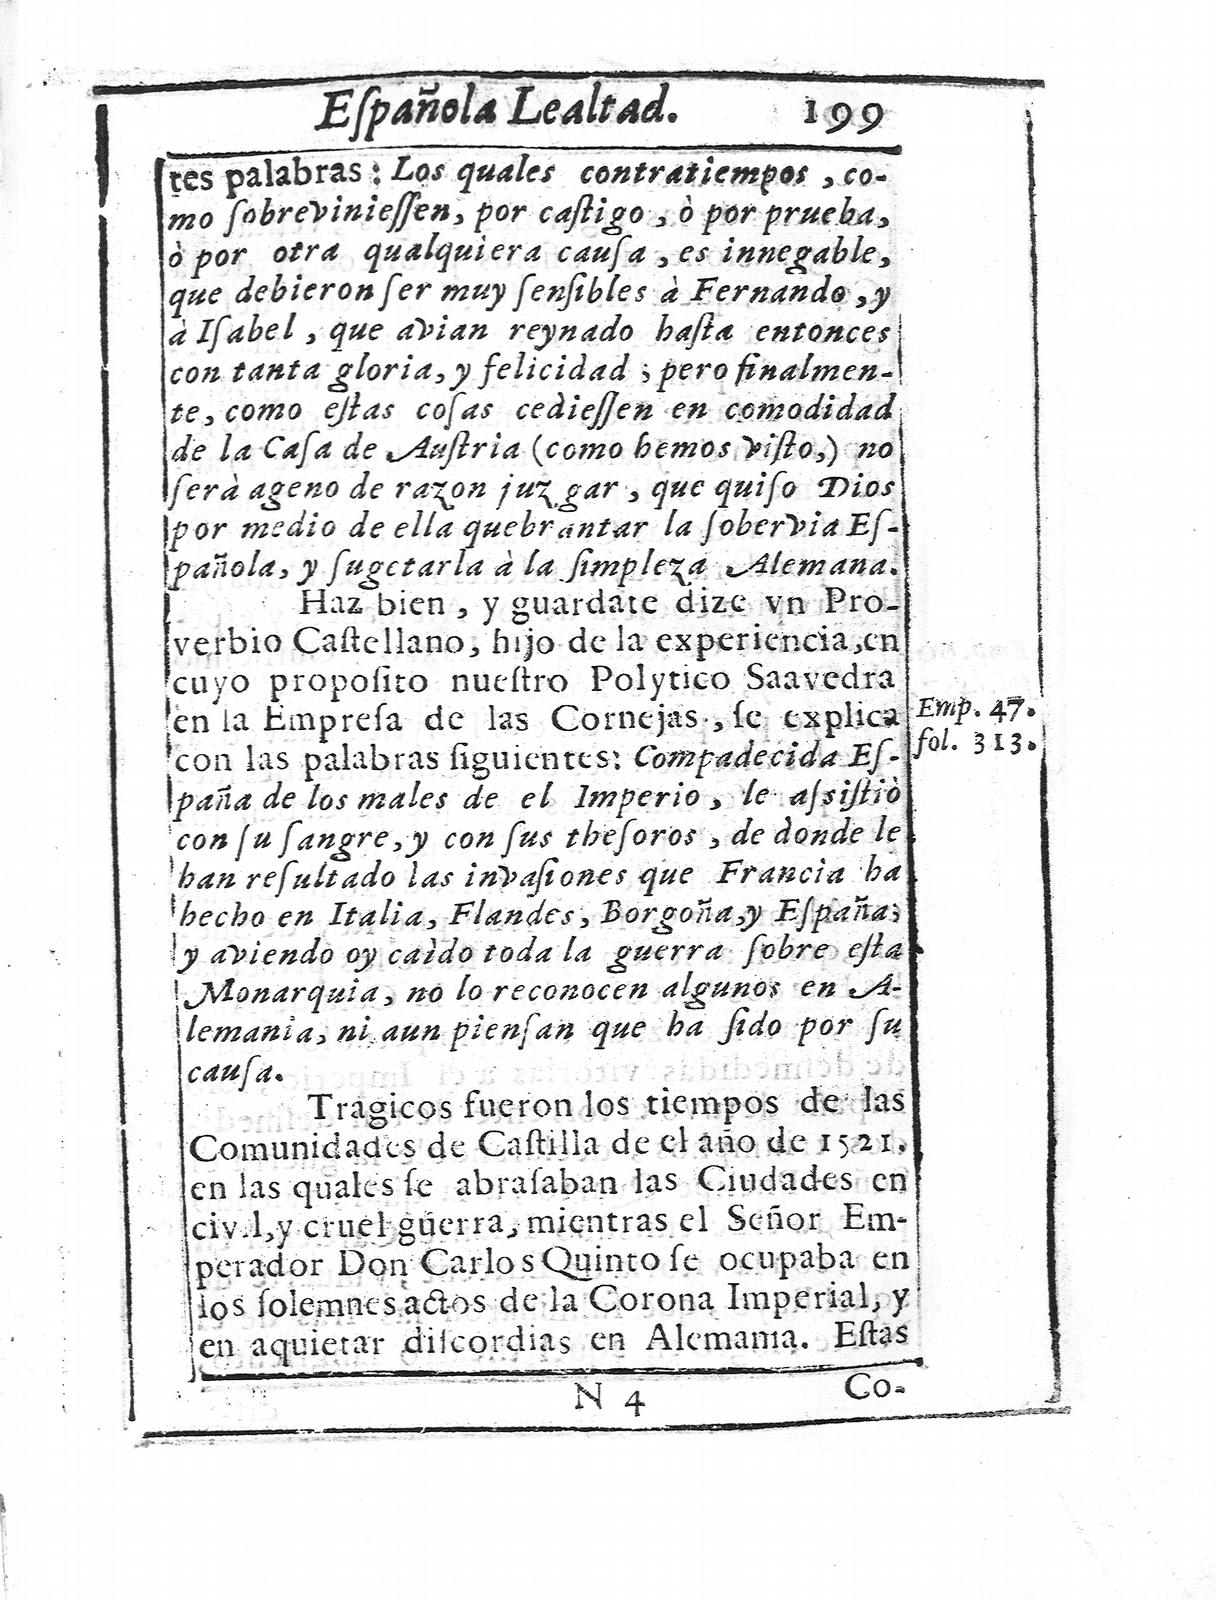 Eſpañola Lealtad. 199
tes palabras: Los quales contratiempos, co-
mo ſobrevinieſſen, por caſtigo, ò por prueba,
ò por otra qualquiera cauſa, es innegable,
que debieron ſer muy ſenſibles à Fernando, y
à Iſabel, que avian reynado haſta entonces
con tanta gloria, y felicidad; pero finalmen-
te, como eſtas coſas cedieſſen en comodidad
de la Caſa de Auſtria (como hemos viſto,) no
ſerà ageno de razon juzgar, que quiſo Dios
por medio de ella quebrantar la ſobervia Eſ-
pañola, y ſugetarla à la ſimpleza Alemana.
Haz bien, y guardate dize vn Pro-
verbio Caſtellano, hijo de la experiencia, en
cuyo propoſito nueſtro Polytico Saavedra
en la Empreſa de las Cornejas, ſe explica
con las palabras ſiguientes: Compadecida Eſ-
paña de los males de el Imperio, le aſsiſtiò
con ſu ſangre, y con ſus theſoros, de donde le
han reſultado las invaſiones que Francia ha
hecho en Italia, Flandes, Borgoña, y España;
y aviendo oy caìdo toda la guerra ſobre eſta
Monarquia, no lo reconocen algunos en A-
lemania, ni aun pienſan que ha ſido por ſu
cauſa.
Emp. 47.
fol. 313.
Tragicos fueron los tiempos de las
Comunidades de Caſtilla de el año de 1521.
en las quales ſe abraſaban las Ciudades en
civil, y cruel guerra, mientras el Señor Em-
perador Don Carlos Quinto ſe ocupaba en
los ſolemnes actos de la Corona Imperial, y
en aquietar diſcordias en Alemania. Eſtas
N 4 Co-